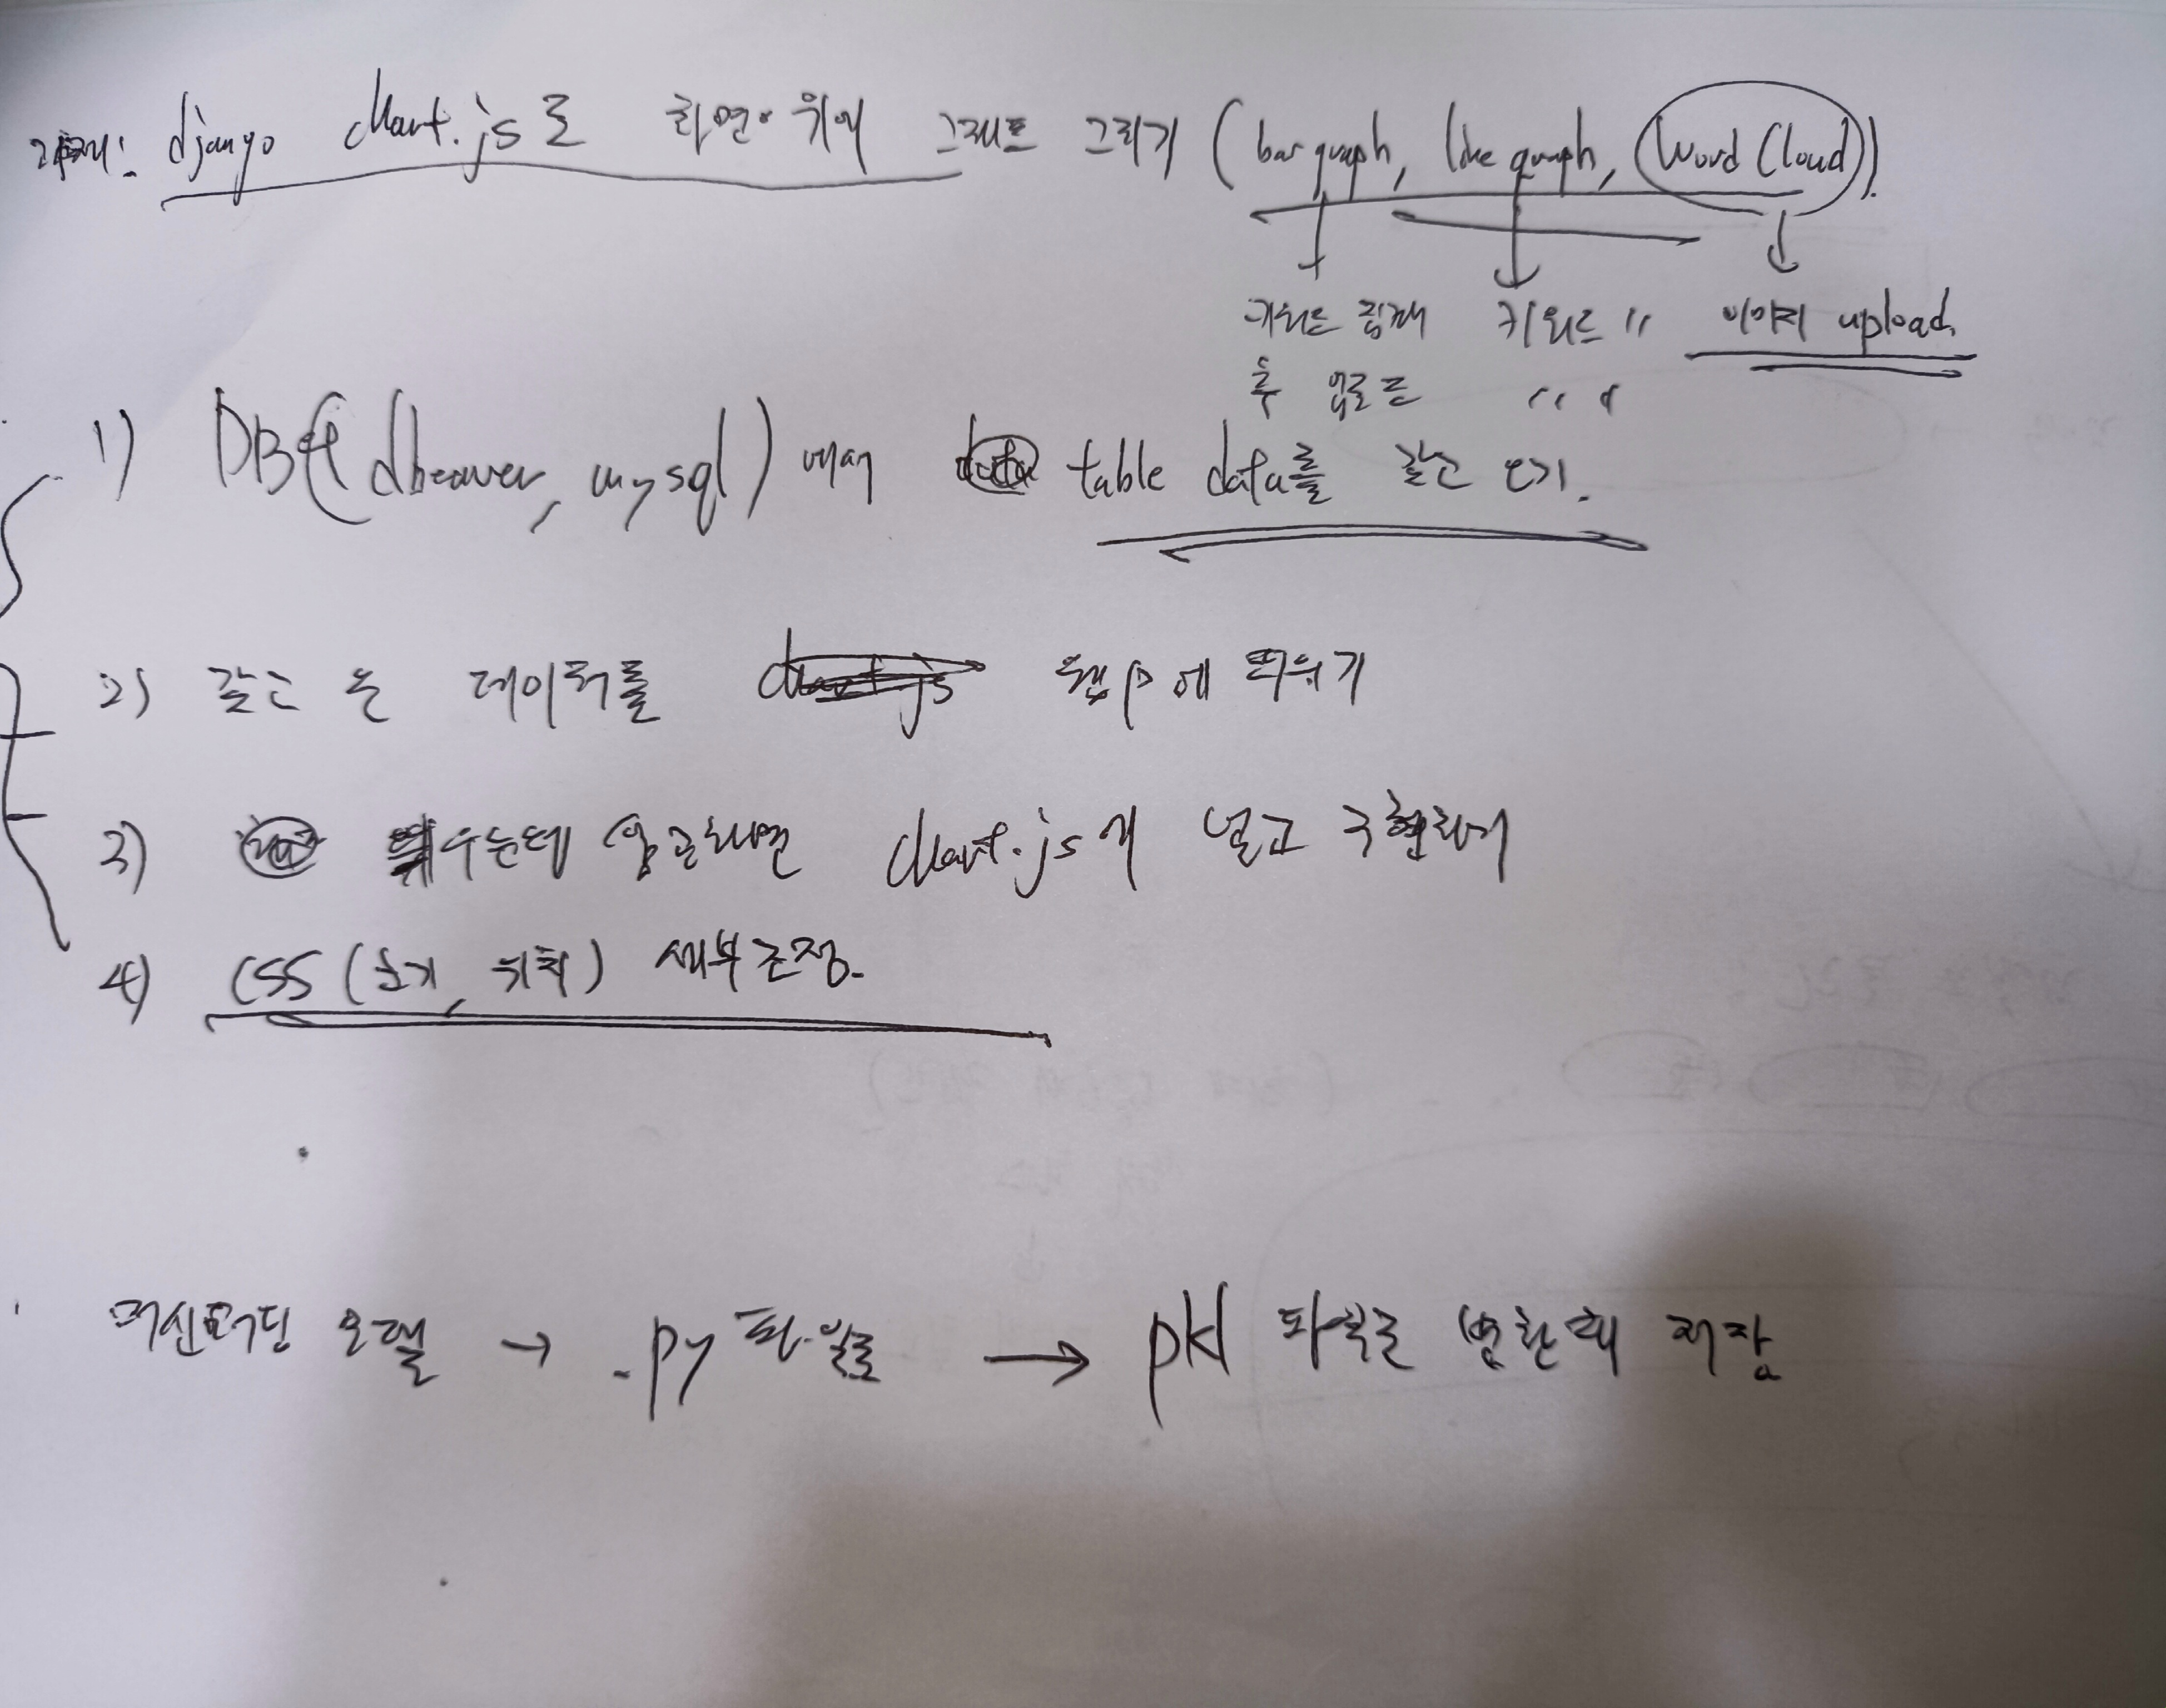 과제: django chart.js로 화면 위에 그래프 그리기 (bar graph, line graph, (Word Cloud)).
키워드 집계 키워드 〃 이미지 upload.
후 업로드 〃 〃
1) DB(dbeaver, mysql) 에서 table data를 갖고 오기.
2) 갖고 온 데이터를 웹 에 띄우기
3) 띄우는데 성공하면 chart.js에 넣고 구현하기
4) CSS (크기, 위치) 세부조정.
머신러닝 모델 → .py 파일로 → pkl 파일로 변환해 저장